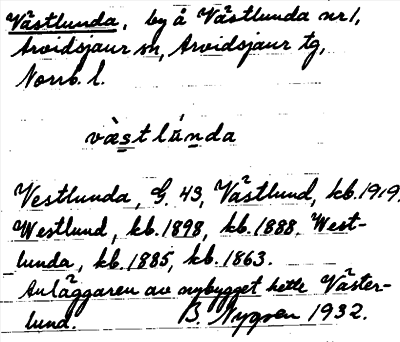 Västlunda, by å Västlunda nr 1,
Arvidsjaur sn, Arvidsjaur tg,
Norrb. l.
vàstlúnda
Vestlunda, G. 43, Västlund, kb. 1919.
Westlund, kb. 1898, kb. 1888. West-
lunda, kb. 1885, kb. 1863.
Anläggaren av nybygget hette Väster-
lund. B. Nygren 1932.